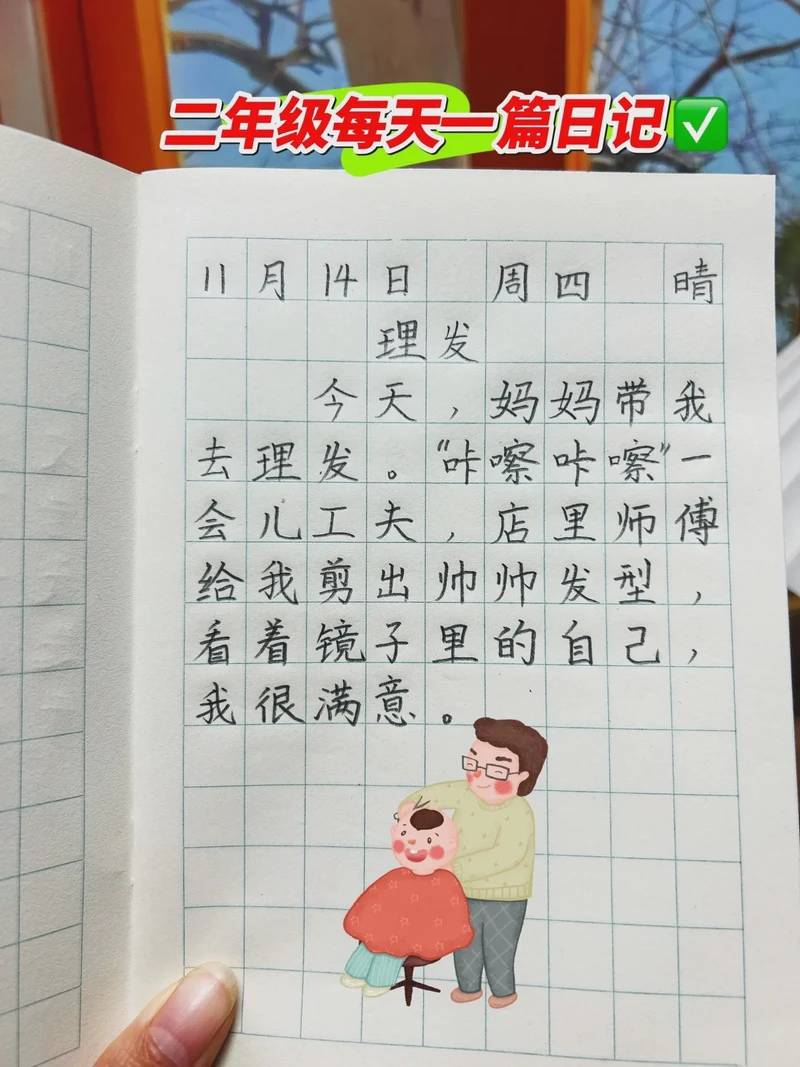 二年级每天一篇日记
11月14日 周四 晴
理发
今天，妈妈带我
去理发。“咔嚓咔嚓”一
会儿工夫，店里师傅
给我剪出帅帅发型，
看着镜子里的自己，
我很满意。